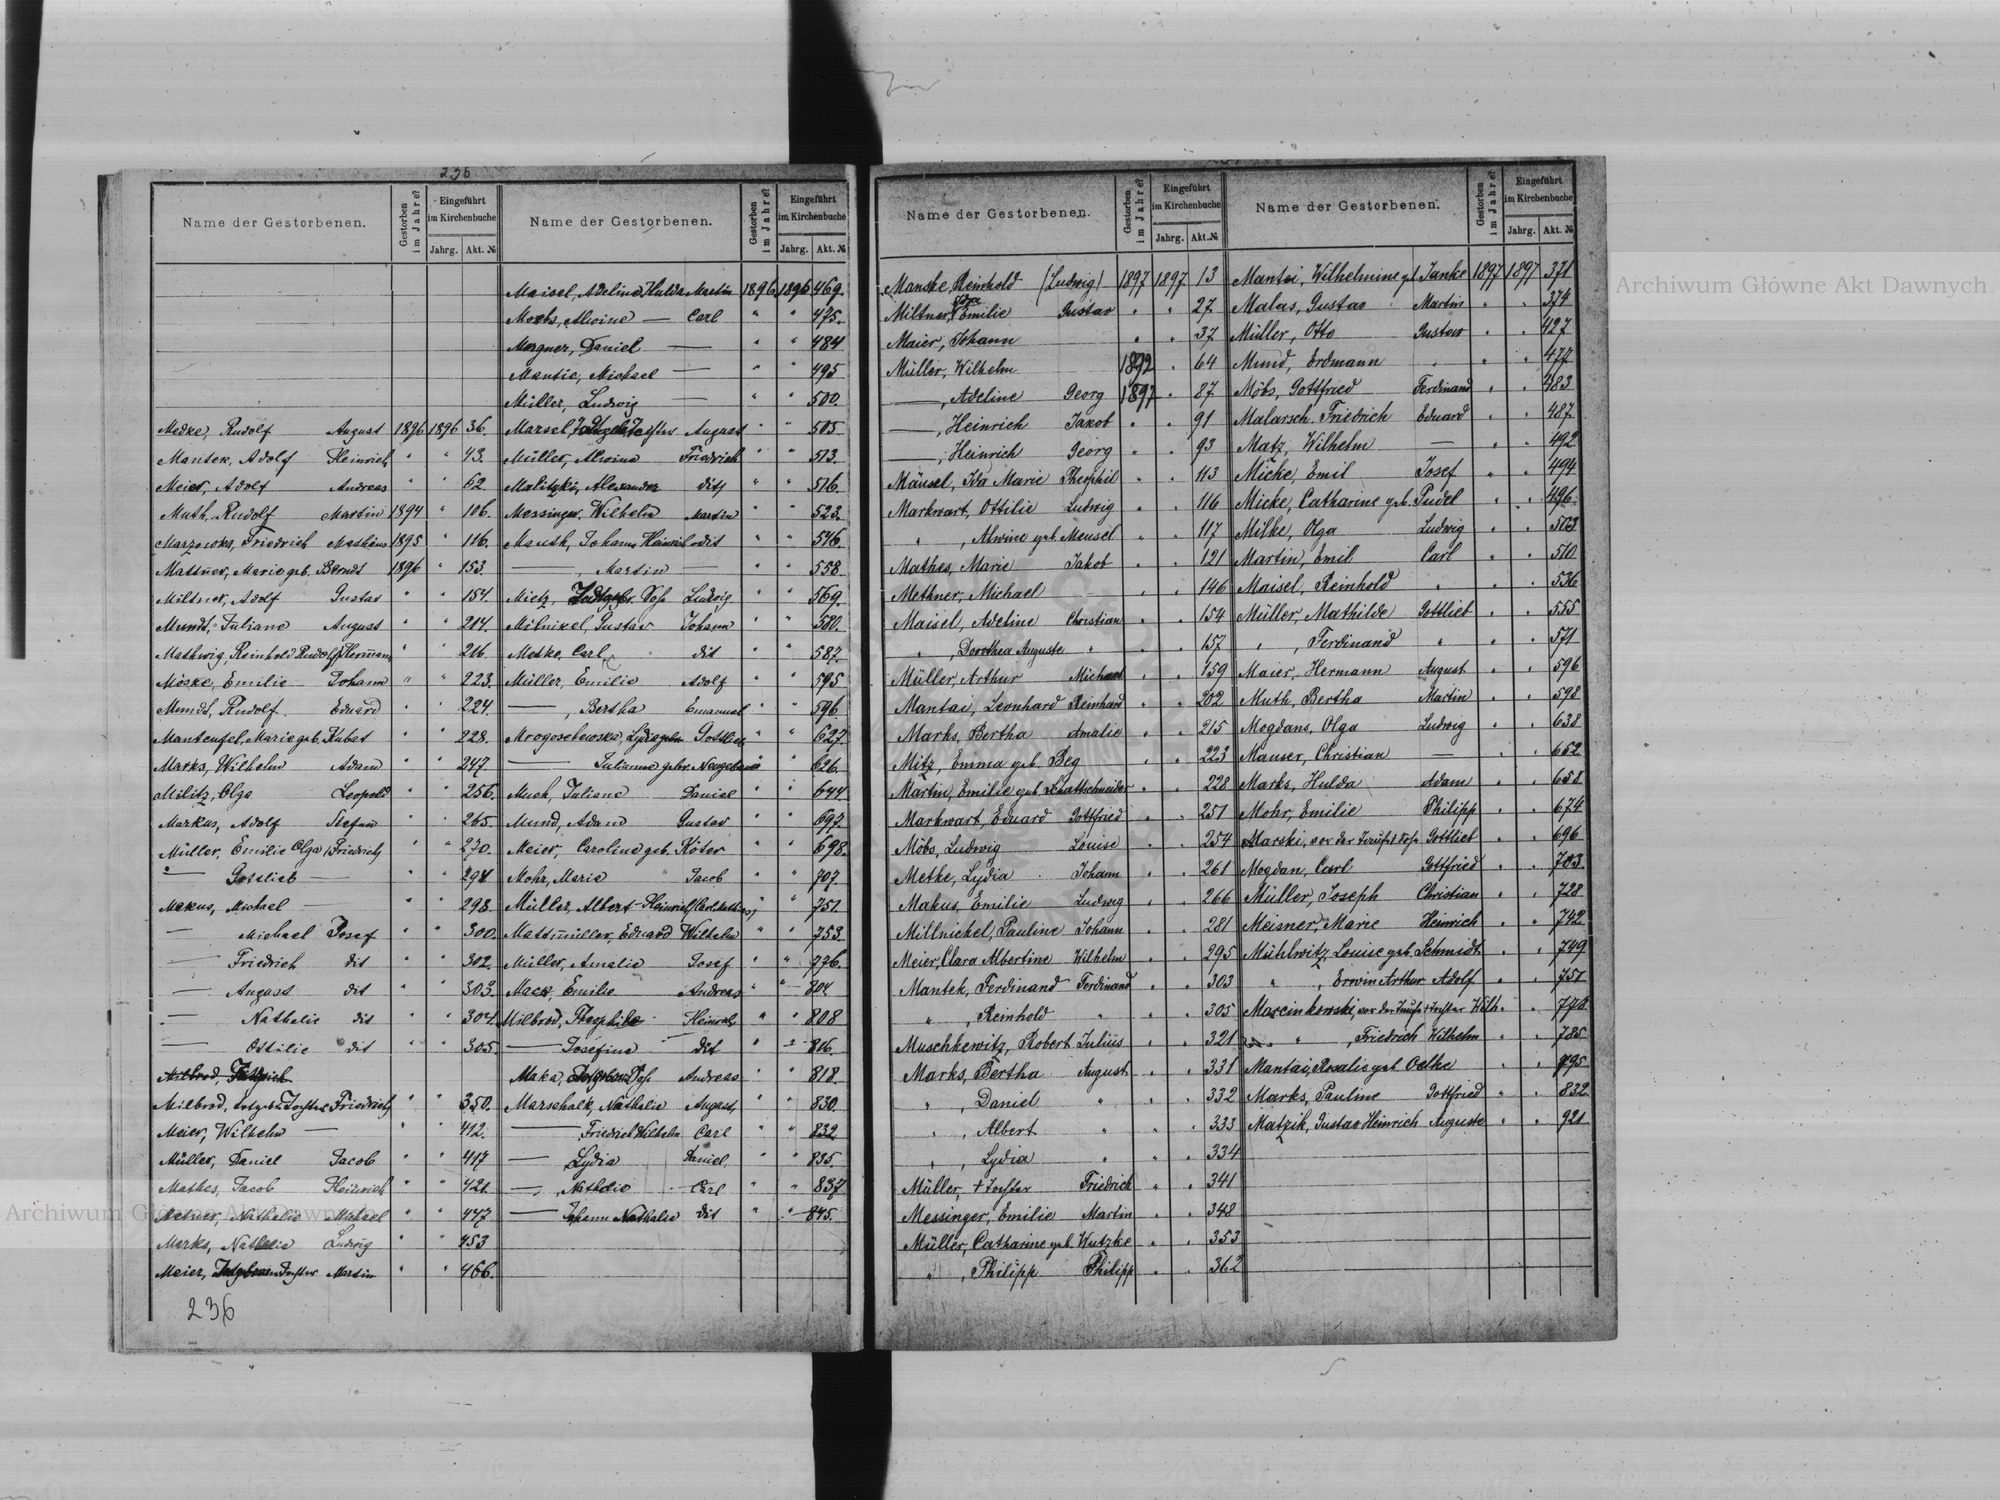 236
Name der Gestorbenen.
Gestorben im Jahre?
Eingeführt im Kirchenbuche
Jahrg. Akt. №
Medke, Rudolf August 1896 1896 36.
Mantek, Adolf Heinrich " " 43.
Meier, Adolf Andreas " " 62.
Muth, Rudolf Martin 1894 " 106.
Friedrich Mathäus 1895 " 116.
Marie geb. Berndt 1896 " 153.
Miltner, Adolf Gustav " " 154.
Mundt, Juliane August " " 214.
Mathwig, Reinhold Rudolf Hermann " " 216.
Möske, Emilie Johann " " 223.
Mundt, Rudolf Eduard " " 224.
Manteufel, Marie geb. Kubat " " 228.
Marks, Wilhelm Adam " " 247
Militz, Olga Leopold " " 256.
Markus, Adolf Stefan " " 265.
Müller, Emilie Olga Friedrich " " 270.
— Gottlieb — " " 294.
Makus, Michael — " " 298.
— Michael Josef " " 300.
— Friedrich dit " " 302.
— August dit " " 303.
— Nathalie dit " " 304.
— Ottilie dit " " 305.
Milbrod,
Milbrod, Todgeb. Tochter Friedrich " " 350.
Meier, Wilhelm — " " 412.
Müller, Daniel Jacob " " 417
Mathes, Jacob Heinrich " " 421.
Nathalie Michael " " 447
Marks, Nathalie Ludwig " " 453
Meier, Tochter Martin " " 466.
236
Name der Gestorbenen.
Gestorben im Jahre?
Eingeführt im Kirchenbuche
Jahrg. Akt. №
Maisel, Adeline Hulda Martin 1896 1896 469.
Alwine — Carl " " 475.
Daniel — " " 484
Michael — " " 495
Müller, Ludwig — " " 500.
August " " 505.
Müller, Alwine Friedrich " " 513.
Malitzki, Alexander dit " " 516.
Messinger, Wilhelm Martin " " 523.
Johann Heinrich dit " " 546.
—, Martin — " " 558.
Mietz, Ludwig " " 569.
Milnikel, Gustav Johann " " 580.
Metke, Carl dit " " 587.
Müller, Emilie Adolf " " 595
—, Bertha Emanuel " " 596.
Gottlieb " " 627.
— Julianna geb. " " 626.
Juliane Daniel " " 644
Mund, Adam Gustav " " 697.
Meier, Caroline geb. Köter " " 698.
Mohr, Maria Jacob " " 707.
Müller, Albert Heinrich " " 751.
Eduard Wilhelm " " 753.
Müller, Amalie Josef " " 776.
Mack, Emilie Andreas " " 804
Milbrod, Theophile Heinrich " " 808
— Josefine dit " " 816.
Maka, Andreas " " 818.
Marschalk, Nathalie August " " 830.
— Friedrich Wilhelm Carl " " 832
— Lydia Daniel " " 835.
—, Nathalie Carl " " 837
— Johann Nathalie dit " " 845.
Name der Gestorbenen.
Gestorben im Jahre?
Eingeführt im Kirchenbuche
Jahrg. Akt. №
Manske, Reinhold (Ludwig) 1897 1897 13
Miltner, Emilie Gustav " " 27
Maier, Johann " " 37
Müller, Wilhelm 1892 " 64
—, Adeline Georg 1897 " 87
—, Heinrich Jakob " " 91
—, Heinrich Georg " " 93
Mäusel, Ida Marie Theophil " " 113
Markwart, Ottilie Ludwig " " 116
" , Alwine geb. Meusel " " 117
Mathes, Marie Jakob " " 121
Methner, Michael " " 146
Maisel, Adeline Christian " " 154
" , Dorothea Auguste " " " 157
Müller, Arthur Michael " " 159
Mantai, Leonhard Reinhard " " 202
Marks, Bertha Amalie " " 215
Mitz, Emma geb. Beg " " 223
Martin, Emilie geb. Schattschneider " " 228
Markwart, Eduard Gottfried " " 251
Möbs, Ludwig Louise " " 254
Metke, Lydia Johann " " 261
Makus, Emilie Ludwig " " 266
Millnickel, Pauline Johann " " 281
Meier, Clara Albertine Wilhelm " " 295
Mantek, Ferdinand Ferdinand " " 303
" , Reinhold " " " 305
Muschkewitz, Robert Julius " " 321
Marks, Bertha August " " 331
" , Daniel " " " 332
" , Albert " " " 333
" , Lydia " " " 334
Müller, † Tochter Friedrich " " 341
Messinger, Emilie Martin " " 348
Müller, Catharine geb. Kutzke " " 353
" , Philipp Philipp " " 362
Name der Gestorbenen.
Gestorben im Jahre?
Eingeführt im Kirchenbuche
Jahrg. Akt. №
Mantai, Wilhelmine geb. Janke 1897 1897 371
Malas, Gustav Martin " " 374
Müller, Otto Gustav " " 427
Mund, Erdmann " " " 477
Möbs, Gottfried Ferdinand " " 483
Malarsch, Friedrich Eduard " " 487
Matz, Wilhelm — " " 492
Micke, Emil Josef " " 494
Micke, Catharine geb. Pudel " " 496
Milke, Olga Ludwig " " 503
Martin, Emil Carl " " 510
Maisel, Reinhold " " " 536
Müller, Mathilde Gottlieb " " 555
" , Ferdinand " " " 571
Maier, Hermann August " " 596
Muth, Bertha Martin " " 598
Mogdans, Olga Ludwig " " 638
Mauser, Christian — " " 652
Marks, Hulda Adam " " 658
Mohr, Emilie Philipp " " 674
Marski, vor der Taufe † Sohn Gottlieb " " 696
Mogdan, Carl Gottfried " " 703
Müller, Joseph Christian " " 728
Meisner, Marie Heinrich " " 742
Mühlwitz, Louise geb. Schmidt " " 749
" , Erwin Arthur Adolf " " 751
Marcinkowski, vor der Taufe † Tochter Wilh. " "
" , Friedrich Wilhelm " " 785
Mantai, Rosalie geb. Oelke " " 795
Marks, Pauline Gottfried " " 832
Matzik, Gustav Heinrich Auguste " " 921
Archiwum Główne Akt Dawnych
Archiwum Główne Akt Dawnych